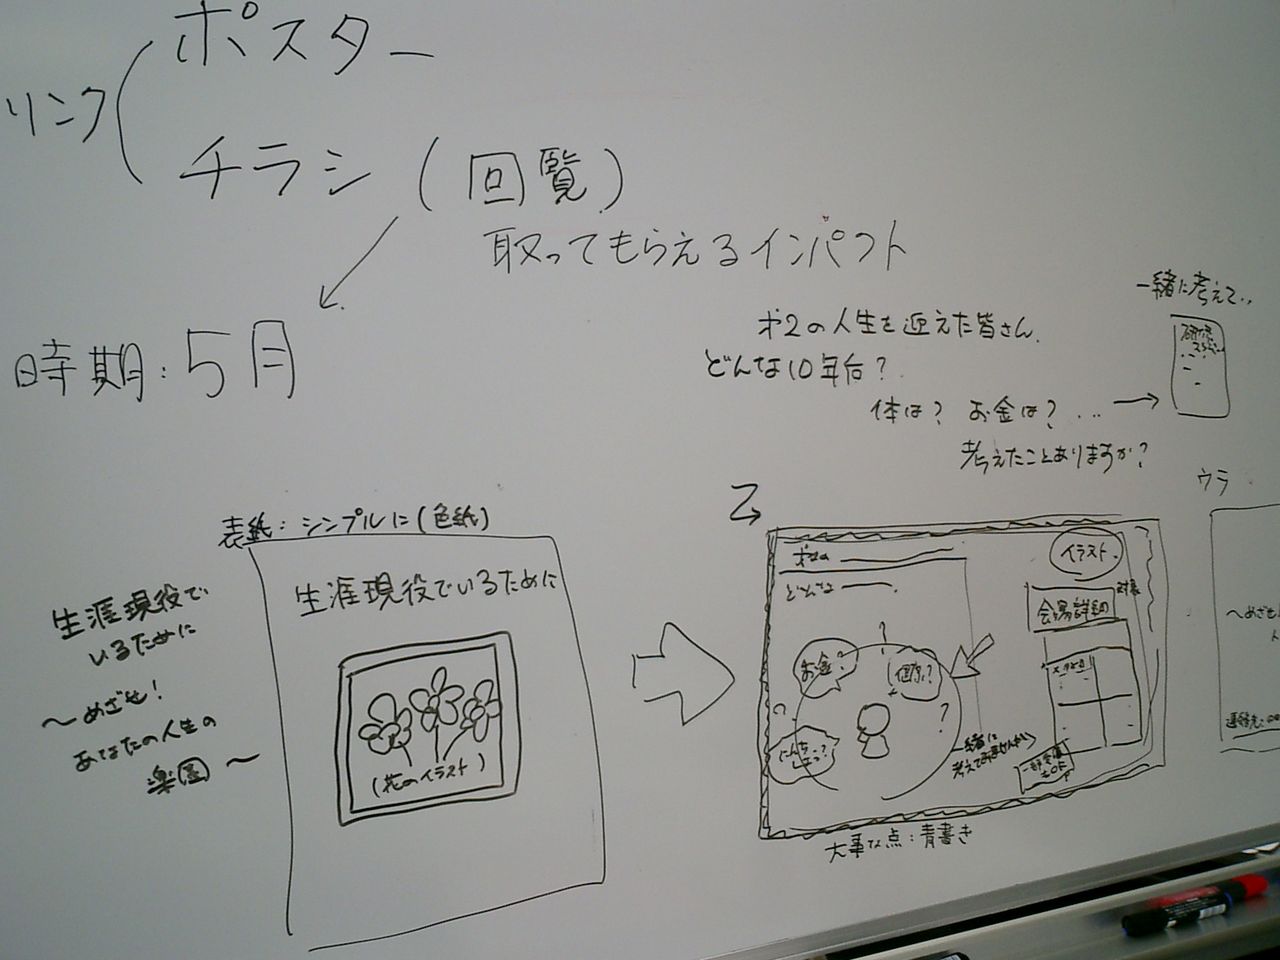 ポスター
リンク
チラシ(回覧)
取ってもらえるインパクト
時期:5月
一緒に考えて..
才2の人生を迎えた皆さん
どんな10年后?
体は? お金は? ... →
考えたことありますか?
表紙:シンプルに(色紙)
生涯現役でいるために
(花のイラスト)
生涯現役で
いるために
〜めざせ!
あなたの人生の
楽園〜
イラスト
対象
会場詳細
どんな
お金?
健康?
?
?
にんちしょう?
一緒に
考えてみませんか
大事な点:青書き
ウラ
〜めざせ
連絡先: